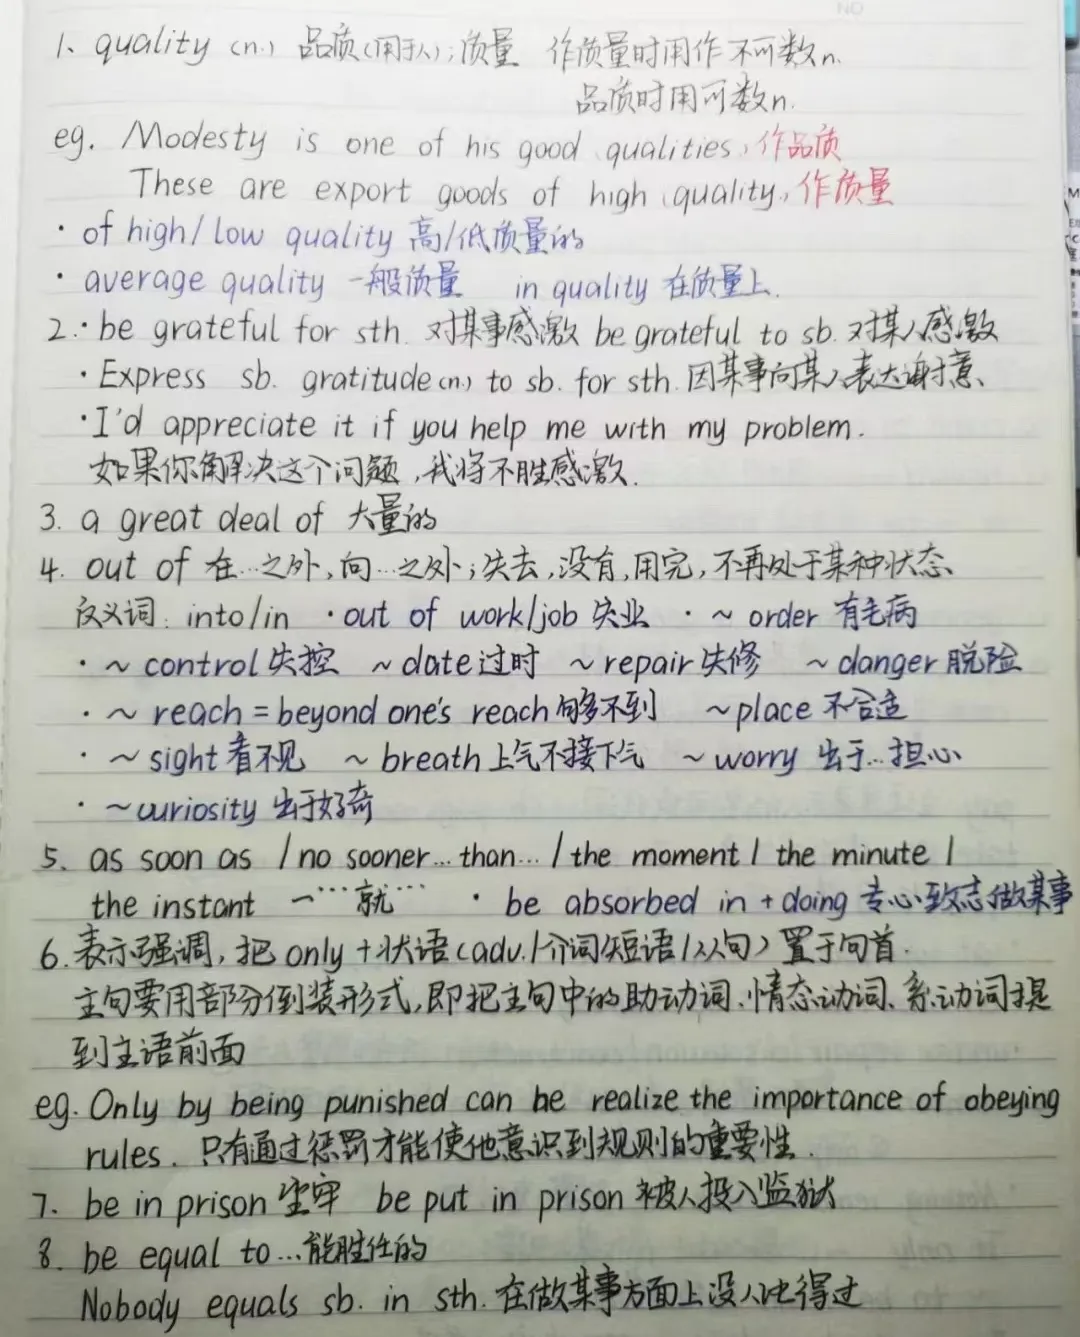 1、quality (n.) 品质(用于人);质量 作质量时用作不可数n.
品质时用可数n.
eg. Modesty is one of his good qualities, 作品质
These are export goods of high quality, 作质量
· of high/low quality 高/低质量的
· average quality 一般质量 in quality 在质量上.
2.· be grateful for sth. 对某事感激 be grateful to sb. 对某人感激
· Express sb. gratitude (n.) to sb. for sth. 因某事向某人表达谢意、
· I'd appreciate it if you help me with my problem.
如果你解决这个问题,我将不胜感激.
3. a great deal of 大量的
4. out of 在…之外,向…之外;失去,没有,用完,不再处于某种状态、
反义词: into/in · out of work/job 失业 · ~ order 有毛病
· ~ control 失控 ~ date 过时 ~ repair 失修 ~ danger 脱险
· ~ reach = beyond one's reach 够不到 ~ place 不合适
· ~ sight 看不见 ~ breath 上气不接下气 ~ worry 出于…担心
· ~ curiosity 出于好奇
5、as soon as / no sooner … than … / the moment / the minute /
the instant 一…就… · be absorbed in + doing 专心致志做某事
6.表示强调,把only+状语(adv./介词短语/从句)置于句首.
主句要用部分倒装形式,即把主句中的助动词、情态动词、系动词提
到主语前面
eg. Only by being punished can he realize the importance of obeying
rules. 只有通过惩罚才能使他意识到规则的重要性.
7. be in prison 坐牢 be put in prison 被人投入监狱
8. be equal to …能胜任的
Nobody equals sb. in sth. 在做某事方面上没人比得过